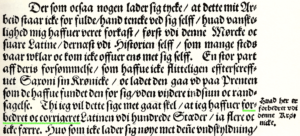 Der som ocsaa nogen lader sig tycke / at dette mit Ar-
beid staar icke for fulde / hand tencke ved sig self / huad vanste-
lighed mig haffuer veret forkast / først vdi denne Morcke oc
suare Latine / dernæst vdi Historien self / som mange steds
vaar vklar oc kom icke offuer ens met sig self. En stor part
aff deris forsømmelse / som haffue icke flitteligen effterfreff-
uet Saxon sin Krønicke / oc ladet den gaa vd paa Prenten
som de haffue fundet den for sig / vden videre indsiun oc rand-
sagelse. Thi ieg vil dette sige met gaat skel / at ieg haffuer for-
bedret oc corrigeret Latinen vdi hundrede Stæder / ia flere oc
icke færre. Huo som icke lader sig nøye met denne vndskylning
Huad her er
forbedret vdi
denne Krø-
nicke.